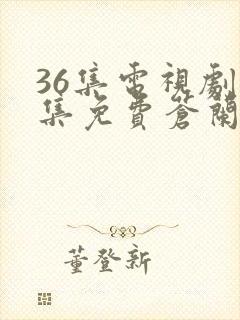 36集電視劇
集免費蒼蘭
董登新